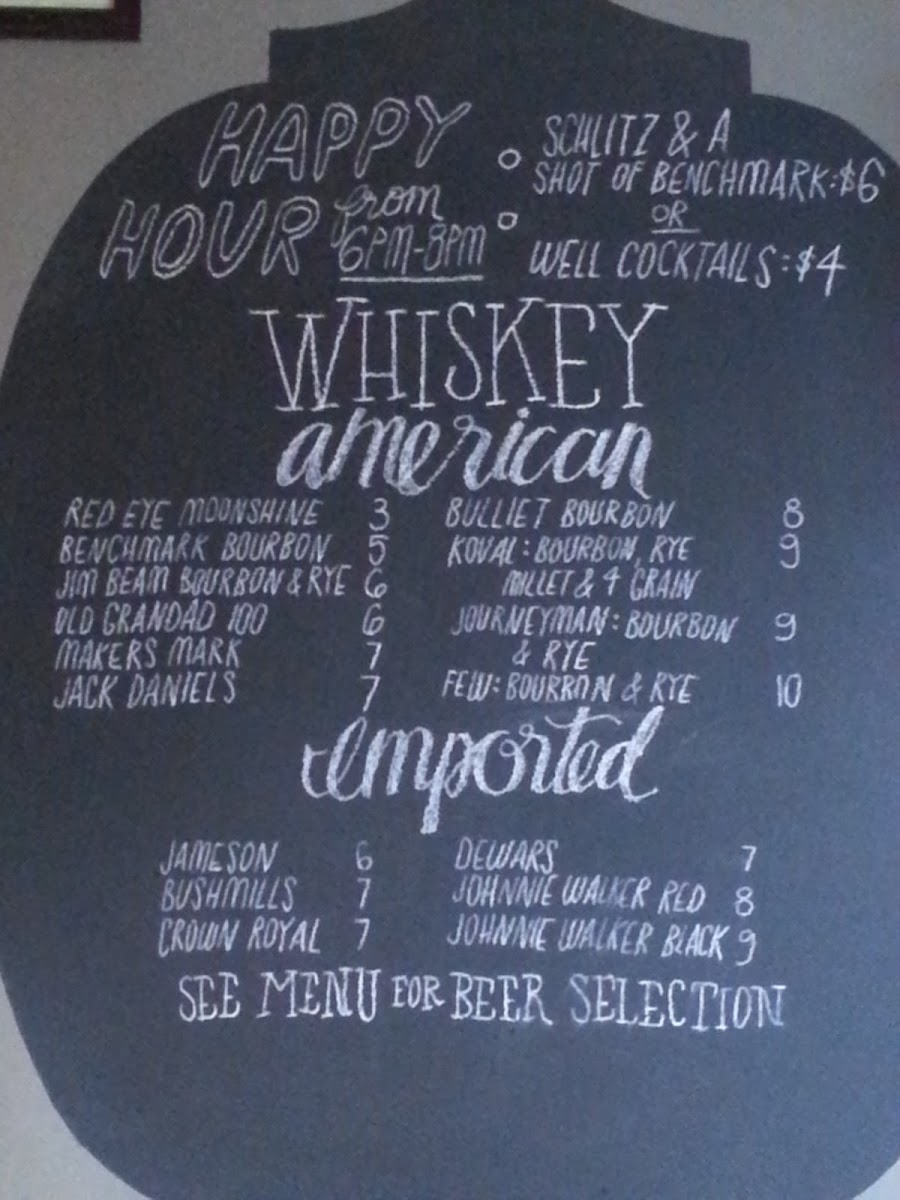 HAPPY
HOUR from
6PM-8PM
SCHLITZ & A
SHOT OF BENCHMARK: $6
OR
WELL COCKTAILS: $4
WHISKEY
american
RED EYE MOONSHINE 3
BENCHMARK BOURBON 5
JIM BEAM BOURBON & RYE 6
OLD GRANDAD 100 6
MAKERS MARK 7
JACK DANIELS 7
BULLIET BOURBON 8
KOVAL: BOURBON, RYE 9
MILLET & 4 GRAIN
JOURNEYMAN: BOURBON 9
& RYE
FEW: BOURBON & RYE 10
Imported
JAMESON 6
BUSHMILLS 7
CROWN ROYAL 7
DEWARS 7
JOHNNIE WALKER RED 8
JOHNNIE WALKER BLACK 9
SEE MENU FOR BEER SELECTION